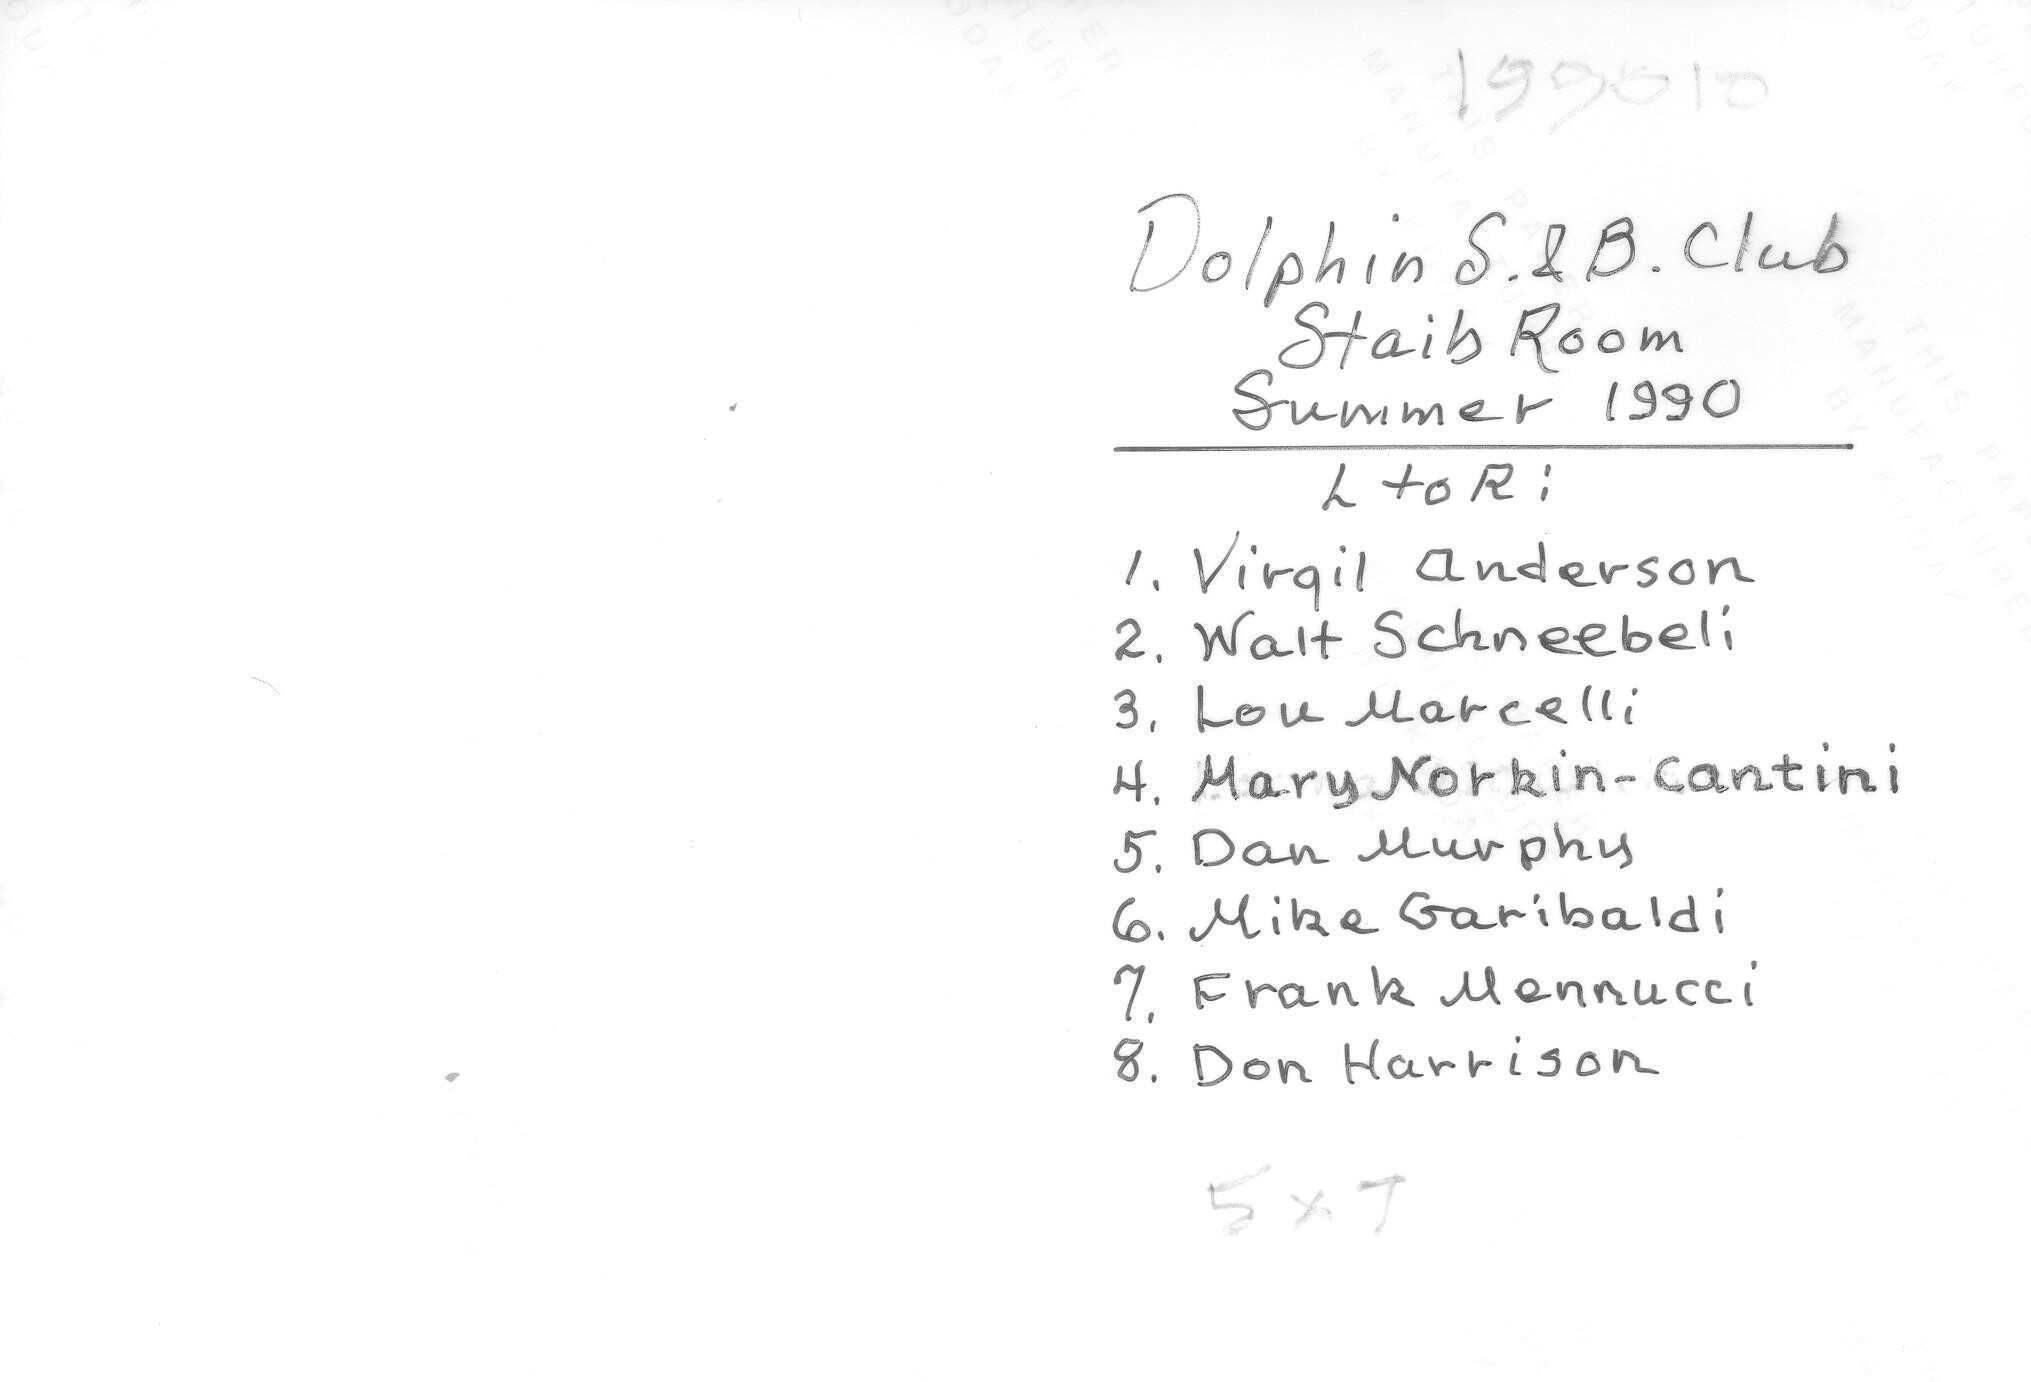 199010
Dolphin S. & B. Club
Staib Room
Summer 1990
L to R:
1. Virgil Anderson
2. Walt Schneebeli
3. Lou Marcelli
4. Mary Norkin-Cantini
5. Dan Murphy
6. Mike Garibaldi
7. Frank Mennucci
8. Don Harrison
5 x 7
THIS PAPER
MANUFACTURED
BY KODAK